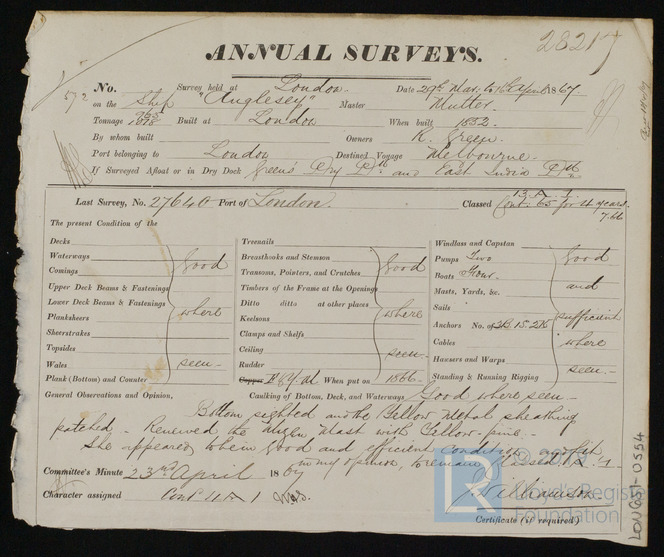 28217
ANNUAL SURVEYS.
572
No. Survey held at London Date 29th Mar. to 11th April 1867
on the Ship "Anglesey" Master Mutter
Tonnage 965 1018 Built at London When built 1852.
By whom built Owners R. Green
Port belonging to London Destined Voyage Melbourne
If Surveyed Afloat or in Dry Dock Green's Dry Dk and East India Dk
Last Survey, No. 27640 Port of London Classed 13 A 1
Cont. 65 for 4 years
7.66
The present Condition of the
Decks
Waterways
Comings
Upper Deck Beams & Fastenings
Lower Deck Beams & Fastenings
Planksheers
Sheerstrakes
Topsides
Wales
Plank (Bottom) and Counter
good
where
seen
Treenails
Breasthooks and Stemson
Transoms, Pointers, and Crutches
Timbers of the Frame at the Openings
Ditto ditto at other places
Keelsons
Clamps and Shelfs
Ceiling
Rudder
Copper Y.M. at When put on 1866
good
where
seen
Windlass and Capstan
Pumps Two
Boats Four
Masts, Yards, &c.
Sails
Anchors No. of 3B. 1S. 2K
Cables
Hawsers and Warps
Standing & Running Rigging
good
and
sufficient
where
seen
General Observations and Opinion, Caulking of Bottom, Deck, and Waterways Good where seen
Bottom sighted and the Yellow Metal sheathing
patched. Renewed the Mizen Mast with Yellow-pine.
She appeared to be in good and efficient condition and fit
in my opinion, to remain classed A 1
Committee's Minute 23rd April 1867
Character assigned Cont. 11 A 1
J. Williamson
Certificate (if required)
LR
Lloyd's Register
Foundation
LON 651-0554